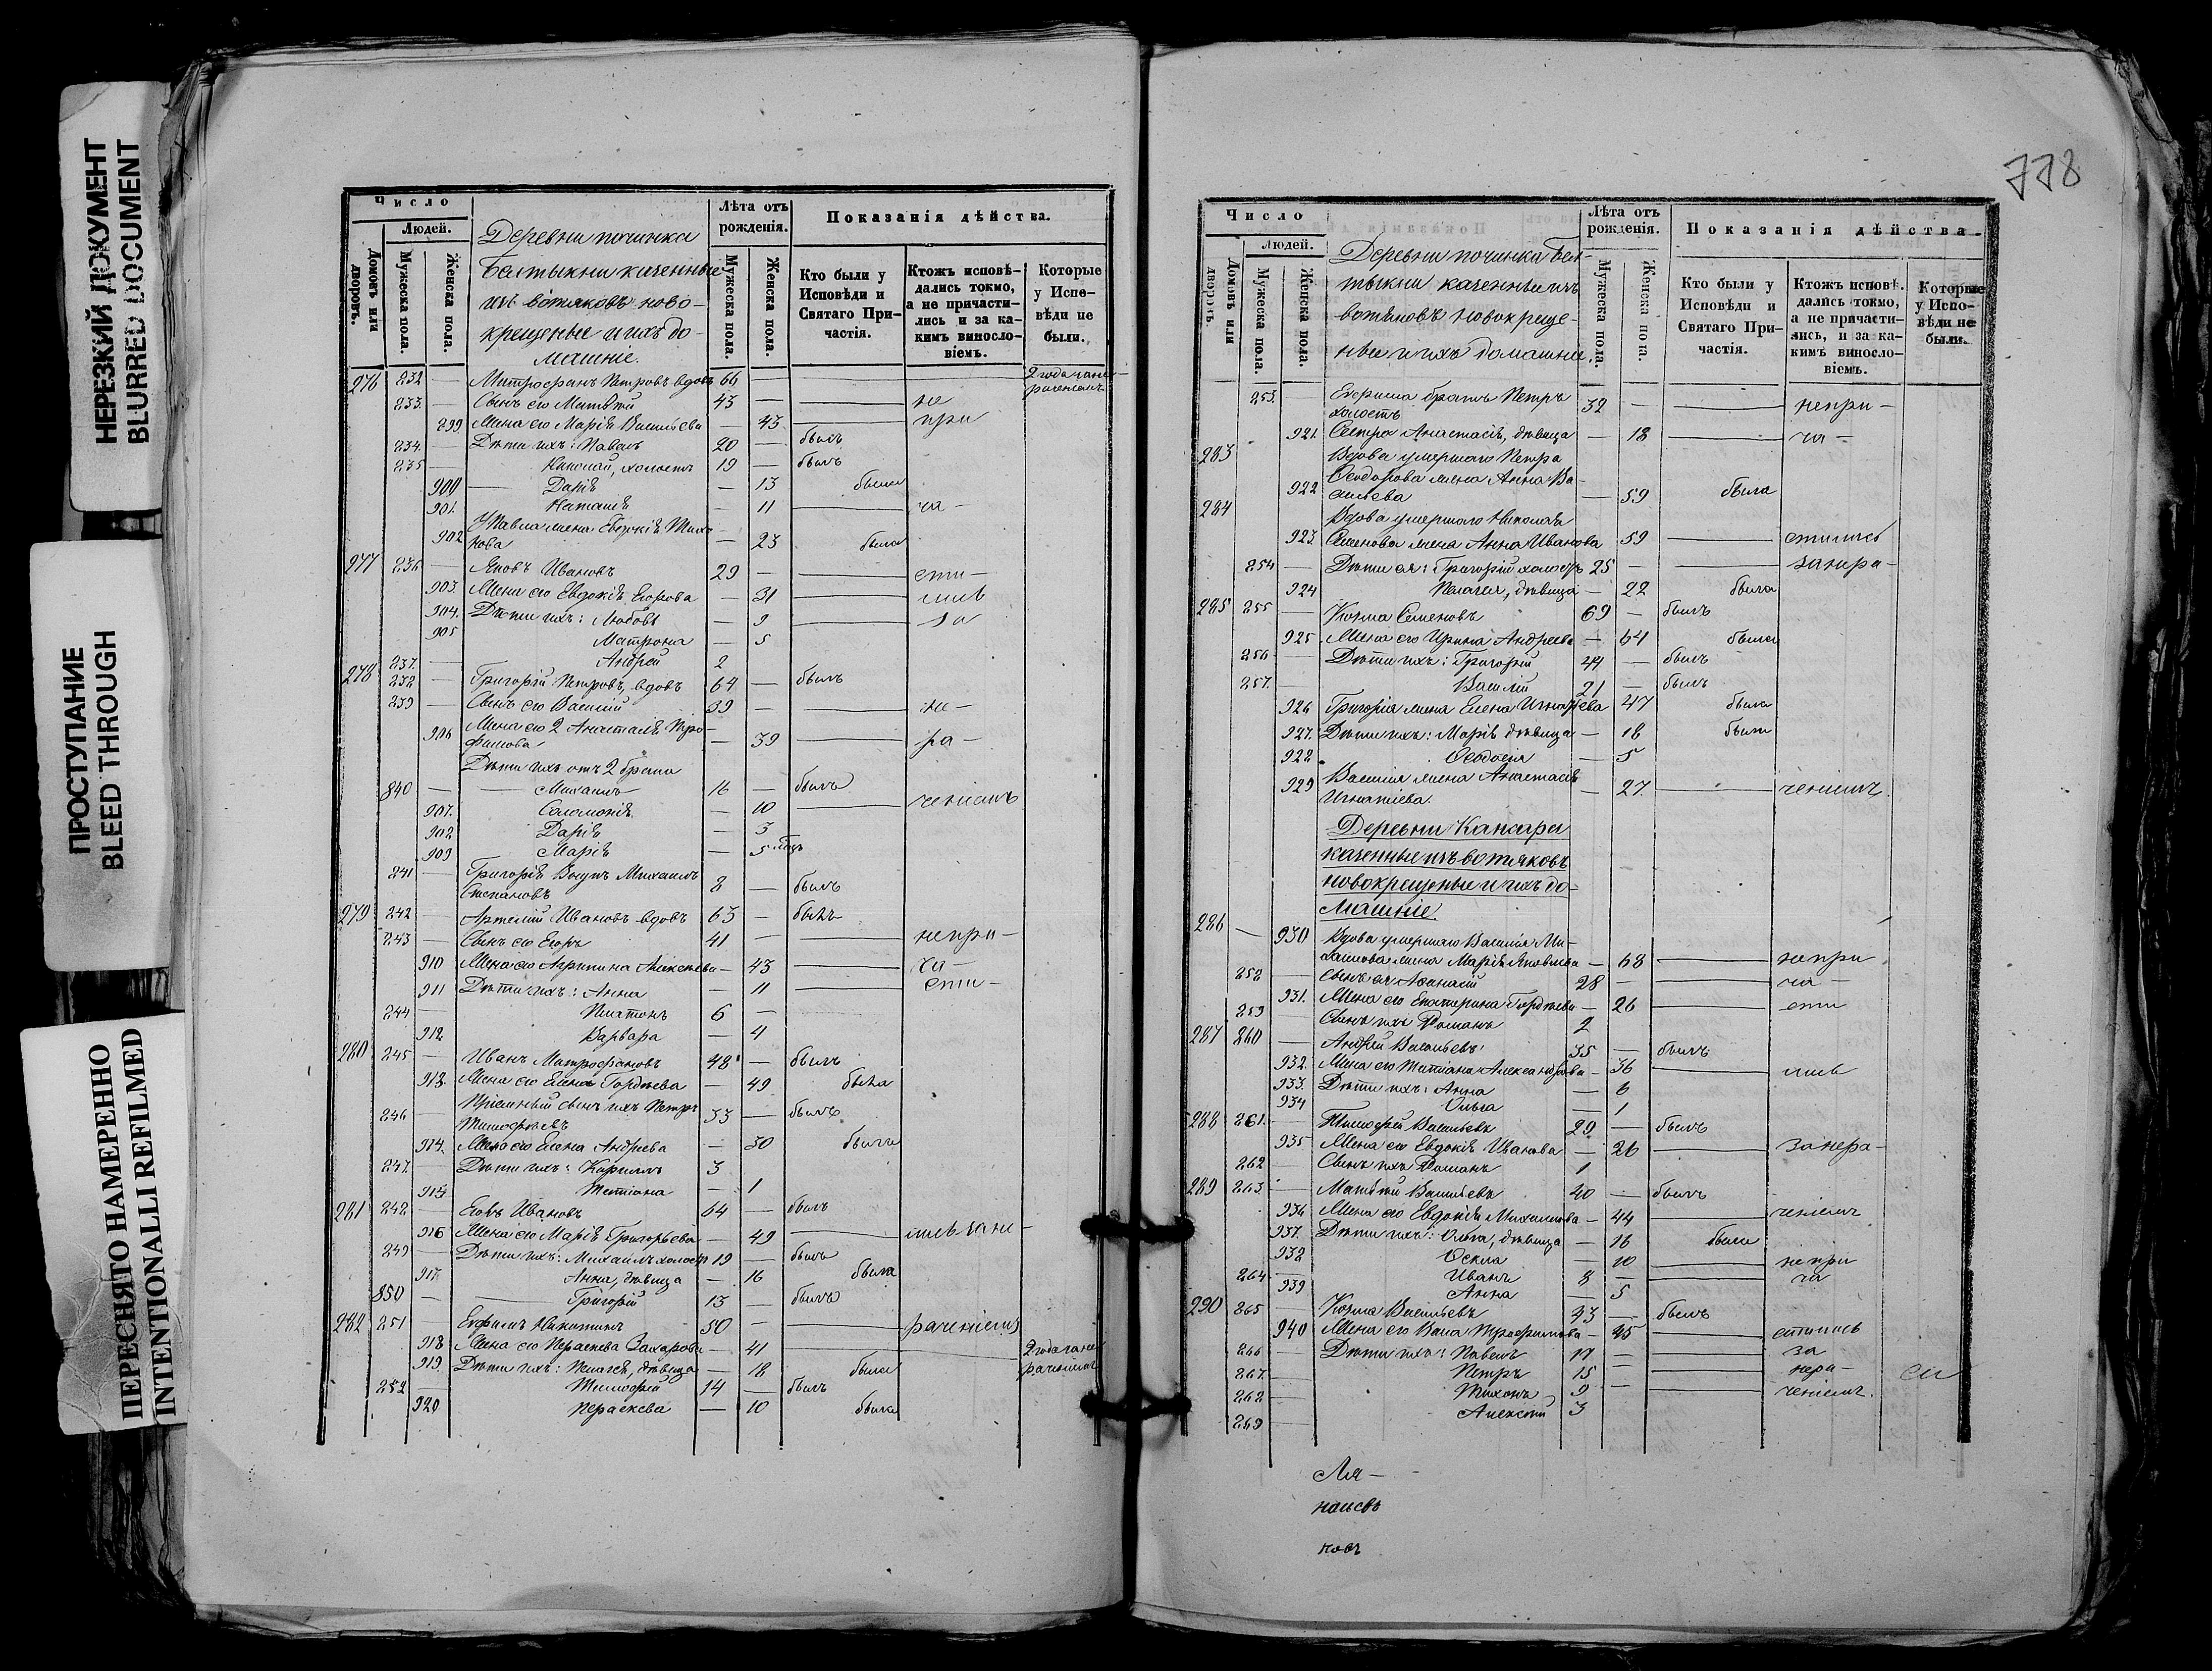 НЕРЕЗКИЙ ДОКУМЕНТ
BLURRED DOCUMENT
ПРОСТУПАНИЕ
BLEED THROUGH
ПЕРЕСНЯТО НАМЕРЕННО
INTENTIONALLI REFILMED
Число
Людей.
Домовъ или дворовъ.
Мужеска пола.
Женска пола.
Деревни починка
казенные
изъ вотяковъ ново-
крещеные и ихъ до-
машніе.
Лѣта отъ рожденія.
Мужеска пола.
Женска пола.
Показанія дѣйства.
Кто были у Исповѣди и Святаго При-частія.
Ктожъ исповѣ-дались токмо, а не причасти-лись и за ка-кимъ винослo-віемъ.
Которые у Испо-вѣди не были.
276 232 — Митрофанъ Петровъ вдовъ 66 — 2 года за не-раченіемъ
233 — Сынъ его Матвѣй 43 — не
899 Жена его Марія Васильева — 43 при
234 — Дѣти ихъ: Павелъ 20 — былъ
235 — Николай, холостъ 19 — былъ
900 Дарія — 13 была
901 Наталія — 11 ча-
902 У Павла жена Евдокія — 23 была
277 236 — Яковъ Ивановъ 29 — сти-
903. Жена его Евдокія Егорова — 31 лись
904. Дѣти ихъ: Любовь — 9 за
905 Матрона — 5
237. — Андрей 2
278 238 — Григорій Петровъ, вдовъ 64 — былъ
239 — Сынъ его Василій 39 — не-
906 Жена его 2 Анастасія Тро-
фимова — 39 ра-
Дѣти ихъ отъ 2 брака
840 — Михаилъ 16 — былъ
907. Соломонія — 10 ченіемъ
908 Дарія — 3
909 Марія — 5
841 — Григорія внукъ Михаилъ
Степановъ 8 — былъ
279 242 — Артемій Ивановъ вдовъ 63 — былъ
243 — Сынъ его Егоръ 41 — непри-
910 Жена его Агрипина Алексѣева — 43 ча-
911 Дѣти ихъ: Анна — 11 сти-
244 — Платонъ 6 —
912 Варвара — 4
280 245 — Иванъ Митрофановъ 48 — былъ
913 Жена его Елена Гордѣева — 49 была
246 — Пріемный сынъ ихъ Петръ
Тимофѣевъ 33 — былъ
914. Жена его Елена Андреева — 30 была
247. — Дѣти ихъ: Кириллъ 3
915 Татіана — 1
281 248 — Ивановъ 64 — былъ
916 Жена его Марія Григорьева — 49 лись за не-
249 — Дѣти ихъ: Михаилъ холостъ 19 — былъ
917 Анна, дѣвица — 16 была
850 — Григорій 13 — былъ
282 251 — Ефимъ Никитинъ 50 — раченіемъ
918 Жена его Параскева Захарова — 41 2 года за не
раченіемъ
919. Дѣти ихъ: Пелагея, дѣвица — 18 была
252 — Тимофей 14 — былъ
920 Параскева — 10 была
778
Число
Людей.
Домовъ или дворовъ.
Мужеска пола.
Женска пола.
Деревни починка
казенные изъ
вотяковъ новокреще-
ные и ихъ домашніе.
Лѣта отъ рожденія.
Мужеска пола.
Женска пола.
Показанія дѣйства.
Кто были у Исповѣди и Святаго При-частія.
Ктожъ исповѣ-дались токмо, а не причасти-лись, и за ка-кимъ винослo-віемъ.
Которые у Испо-вѣди не были.
253. — Ефима братъ Петръ
холостъ 32 — непри-
921. Сестра Анастасія, дѣвица — 18 ча-
283 Вдова умершаго Петра
922 Ѳеодорова жена Анна Ва-
сильева — 59 была
284 Вдова умершаго Николая
923. Семенова жена Анна Иванова 59 стились
254 — Дѣти ея: Григорій холостъ 25 —
924 Пелагея, дѣвица — 22 была
285 255 — Козма Семеновъ 69 — былъ
925 Жена его Ирина Андреева — 64 была
256 — Дѣти ихъ: Григорій 44 — былъ
257. — Василій 21 — былъ
926 Григорія жена Елена Игнатьева 47 была
927. Дѣти ихъ: Марія дѣвица — 18 была
928 Ѳеодосія — 5
929 Василія жена Анастасія
Игнатіева. — 27. ченіемъ.
Деревни
казенные изъ вотяковъ
новокрещеные и ихъ до-
машніе.
286 — 930 Вдова умершаго Василія Ми-
хайлова жена Марія Яковлева — 68 непри
258 — Сынъ ея Аѳанасій 28 — ча-
931. Жена его Екатерина Гордѣева — 26 сти
259 Сынъ ихъ Романъ 2
287 260 — Андрей Васильевъ 35 — былъ
932. Жена его Татіана Александрова — 36 лись
933. Дѣти ихъ: Анна — 6
934 Ольга — 1
288 261. — Тимофей Васильевъ 29 — былъ
935 Жена его Евдокія Иванова — 26 за нера-
262 — Сынъ ихъ Романъ 1
289 263 — Матвѣй Васильевъ 40 — былъ
936 Жена его Евдокія Михайлова — 44 ченіемъ
937. Дѣти ихъ: Ольга, дѣвица — 16 была
938 Ѳекла — 10 непри
264 — Иванъ 8 — ча
939 Анна — 5
290 265 — Козма Васильевъ 43 — былъ
940 Жена его Трофимова — 45 стились
266 — Дѣти ихъ: Павелъ 17 — за
267. — Петръ 15 — нера-
268 — Тихонъ 9 — ченіемъ.
269 — Алексѣй 3